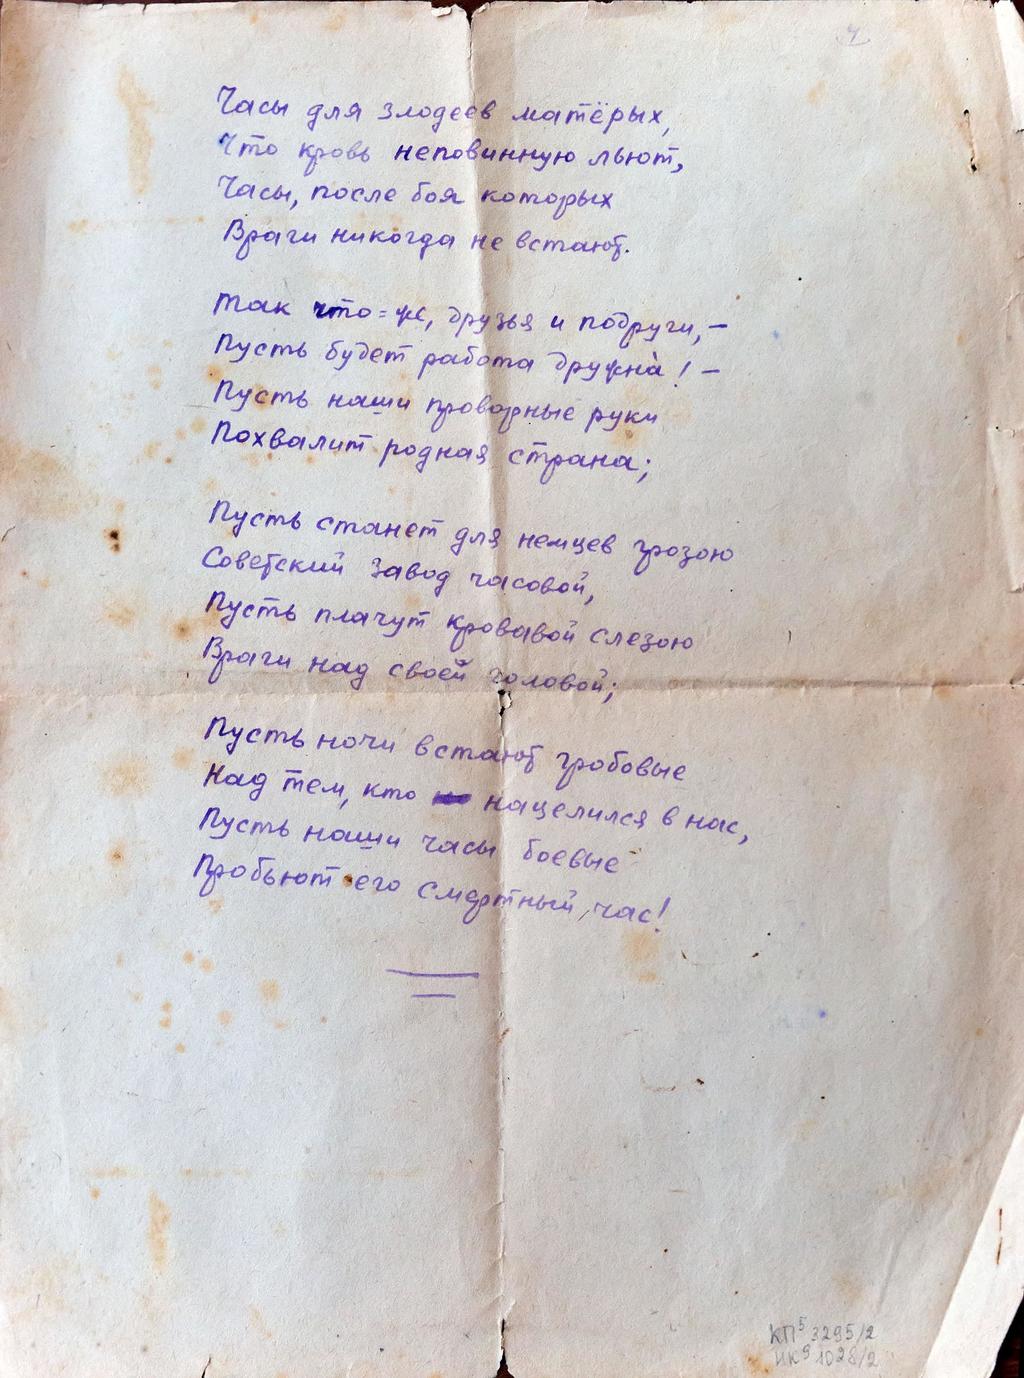 Часы для злодеев матёрых,
Что кровь неповинную льют,
Часы, после боя которых
Враги никогда не встают.
Так что=же, друзья и подруги,—
Пусть будет работа дружна́! —
Пусть наши проворные руки
Похвалит родная страна;
Пусть станет для немцев грозою
Советский завод часовой,
Пусть плачут кровавой слезою
Враги над своей головой;
Пусть ночи встают гробовые
Над тем, кто нацелился в нас,
Пусть наши часы боевые
Пробьют его смертный час!
КП⁵ 3295/2
ИК⁹ 1028/2